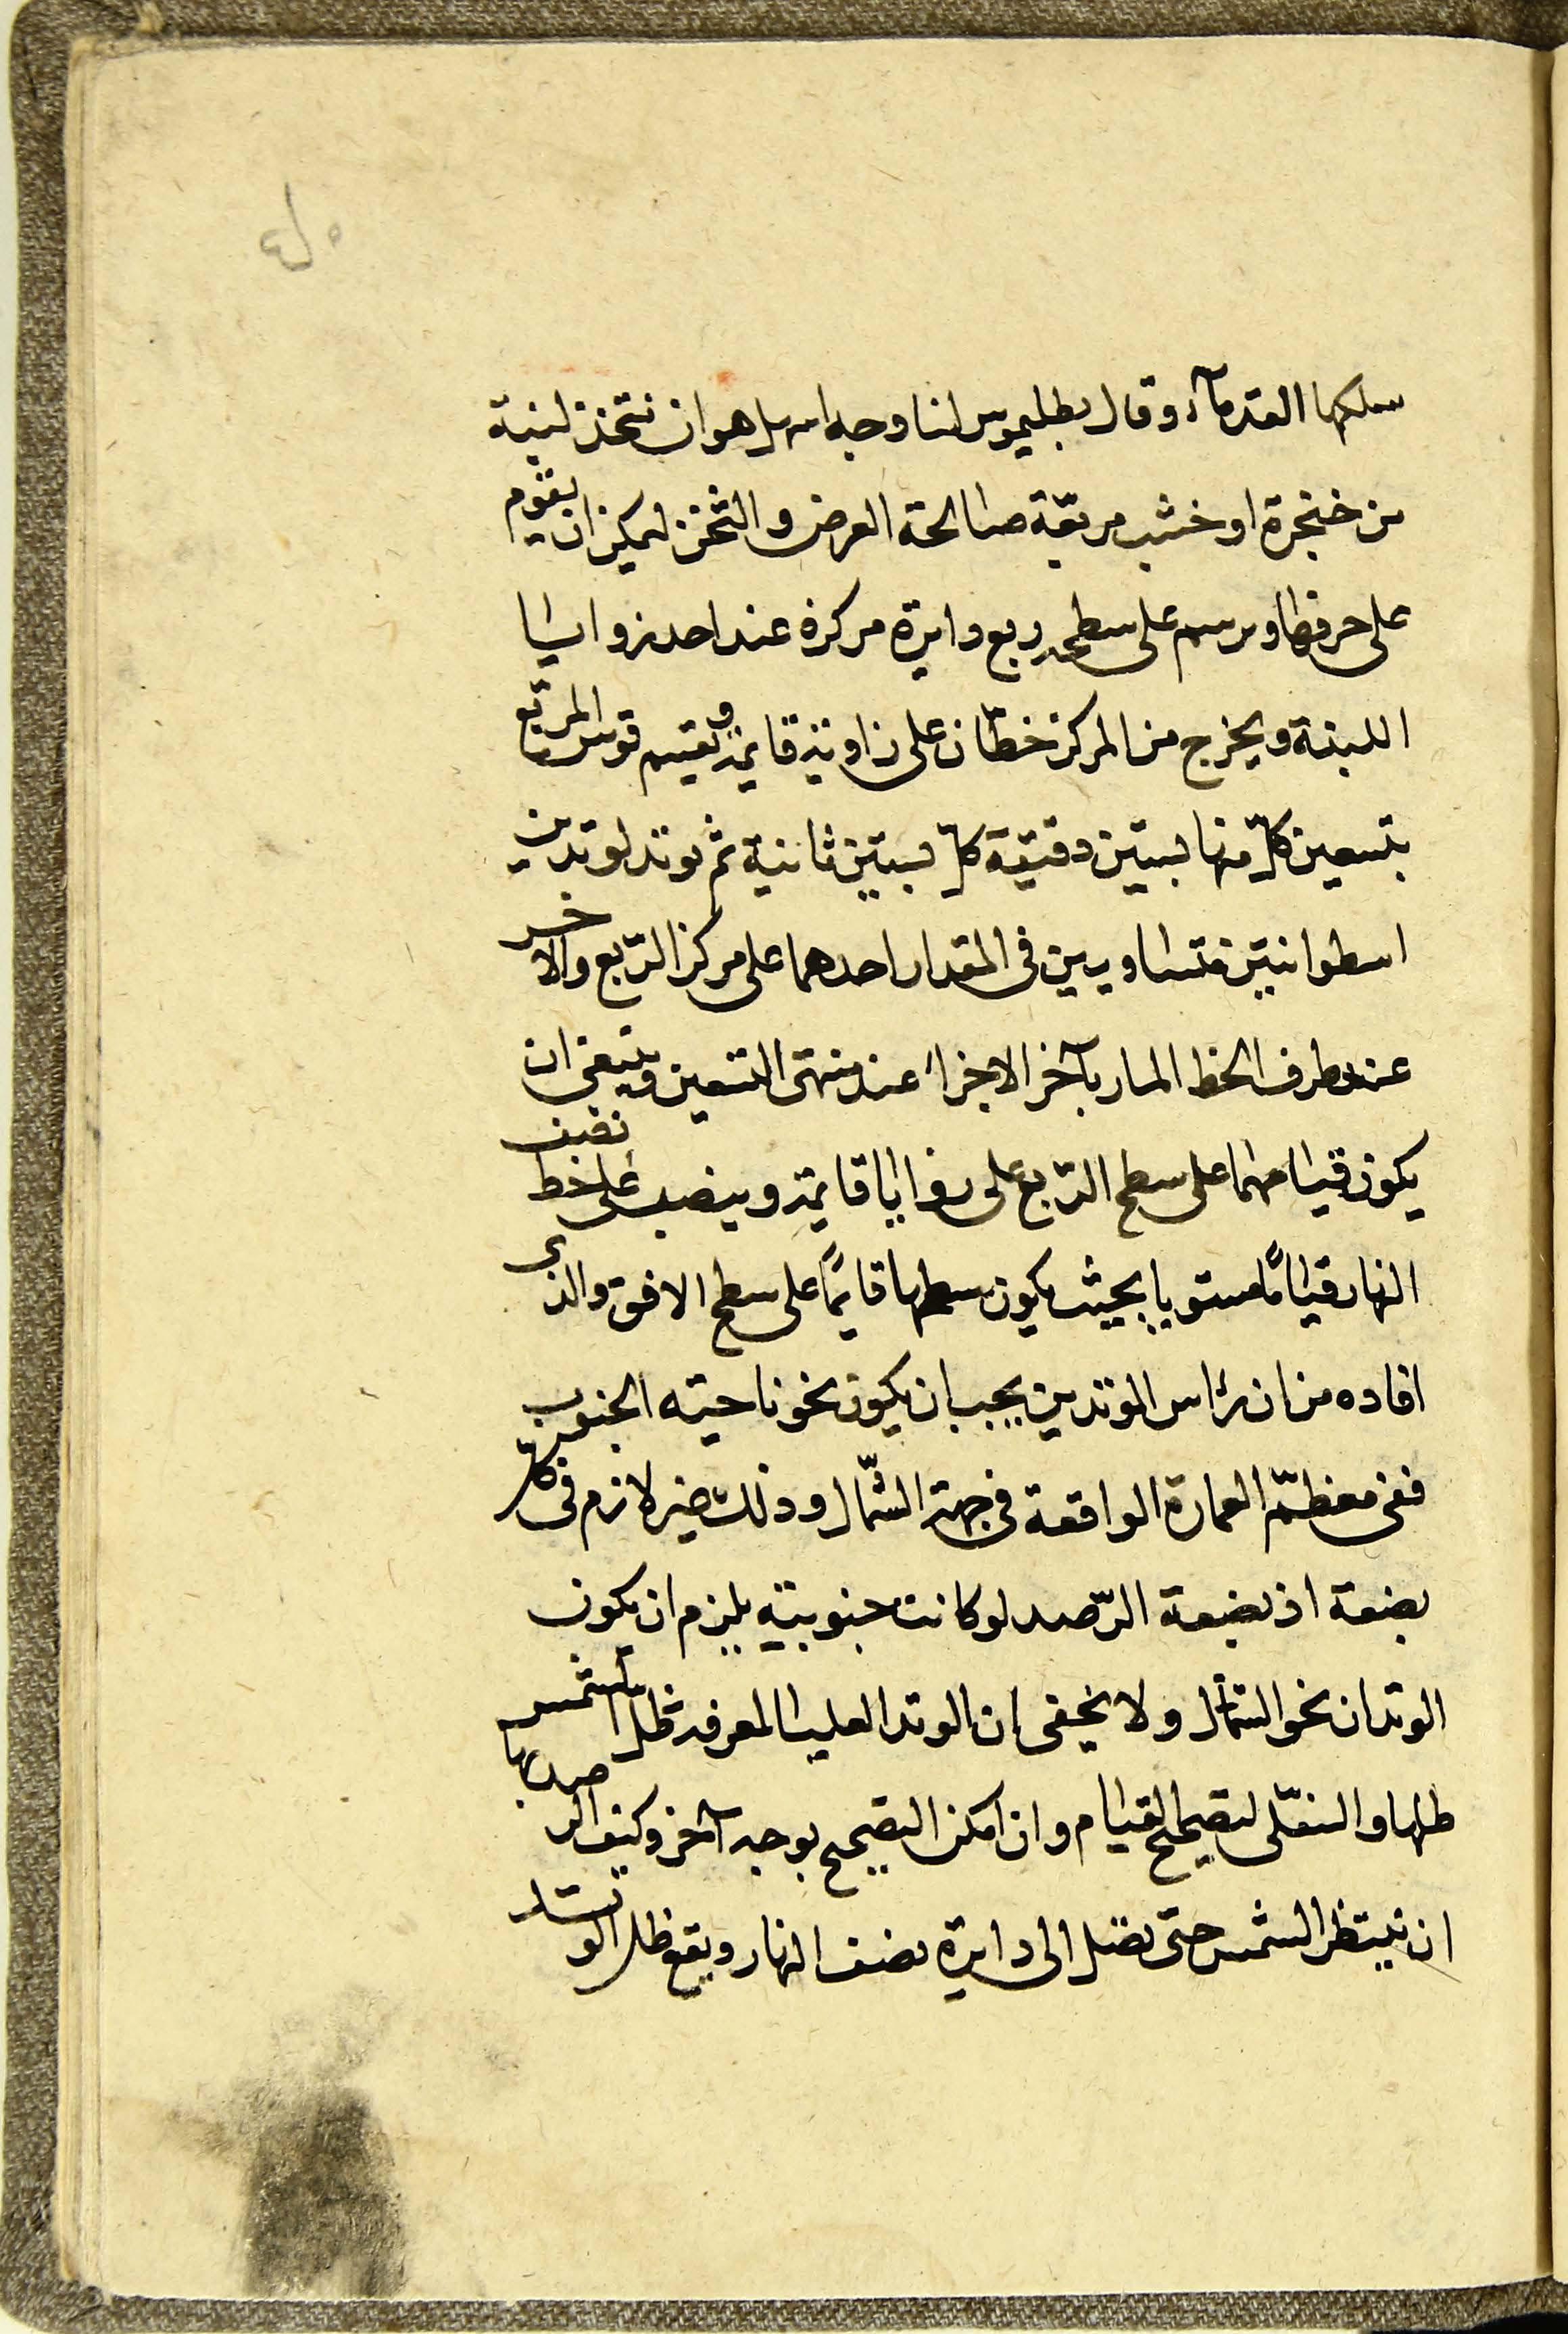 سلكها القدمآء وقال بطليموس لنا وجه اسهل هو ان نتخذ لبنة
من خنجرة او خشب مربّعة صالحة العرض والثخن ليمكن ان يقوم
على حرفها ويرسم على سطحه ربع دايرة مركزه عند احد زوايا
اللبنة ويخرج من المركز خطان على زاوية قايمة ويقسم قوس المربع
بتسعين كلّ منها بستين دقيقة كل بستين ثانية ثم يوتد لوتدين
اسطوانيتين متساويين فى المقدار احدهما على مركز الرّبع والاخر
عند طرف الخط المار بآخر الاجزاء عند منتهى التسعين وينبغى ان
يكون قيامهما على سطح الرّبع على زوايا قايمة وينصب على خط نصف
النهار قيامًا مستويا بحيث يكون سطحها قايمًا على سطح الافق والذى
افاده من ان رأس الوتدين يجب ان يكون نحو ناحية الجنوب
ففى معظمّ العمارة الواقعة فى جهة الشّمال وذلك غير لازم فى كلّ
بضعة اذ بضعة الرّصد لو كانت جنوبيّة يلزم ان يكون
الوتدان نحو الشّمال ولا يخفى ان الوتد العليا لمعرفة ظل الشمس
ظلها والسفلى لتصحيح القيام وان امكن التصحيح بوجه آخر وكيف الرصد بها
ان ينتظر الشمس حتى يصل الى دايرة نصف النهار ويقع ظل الوتد